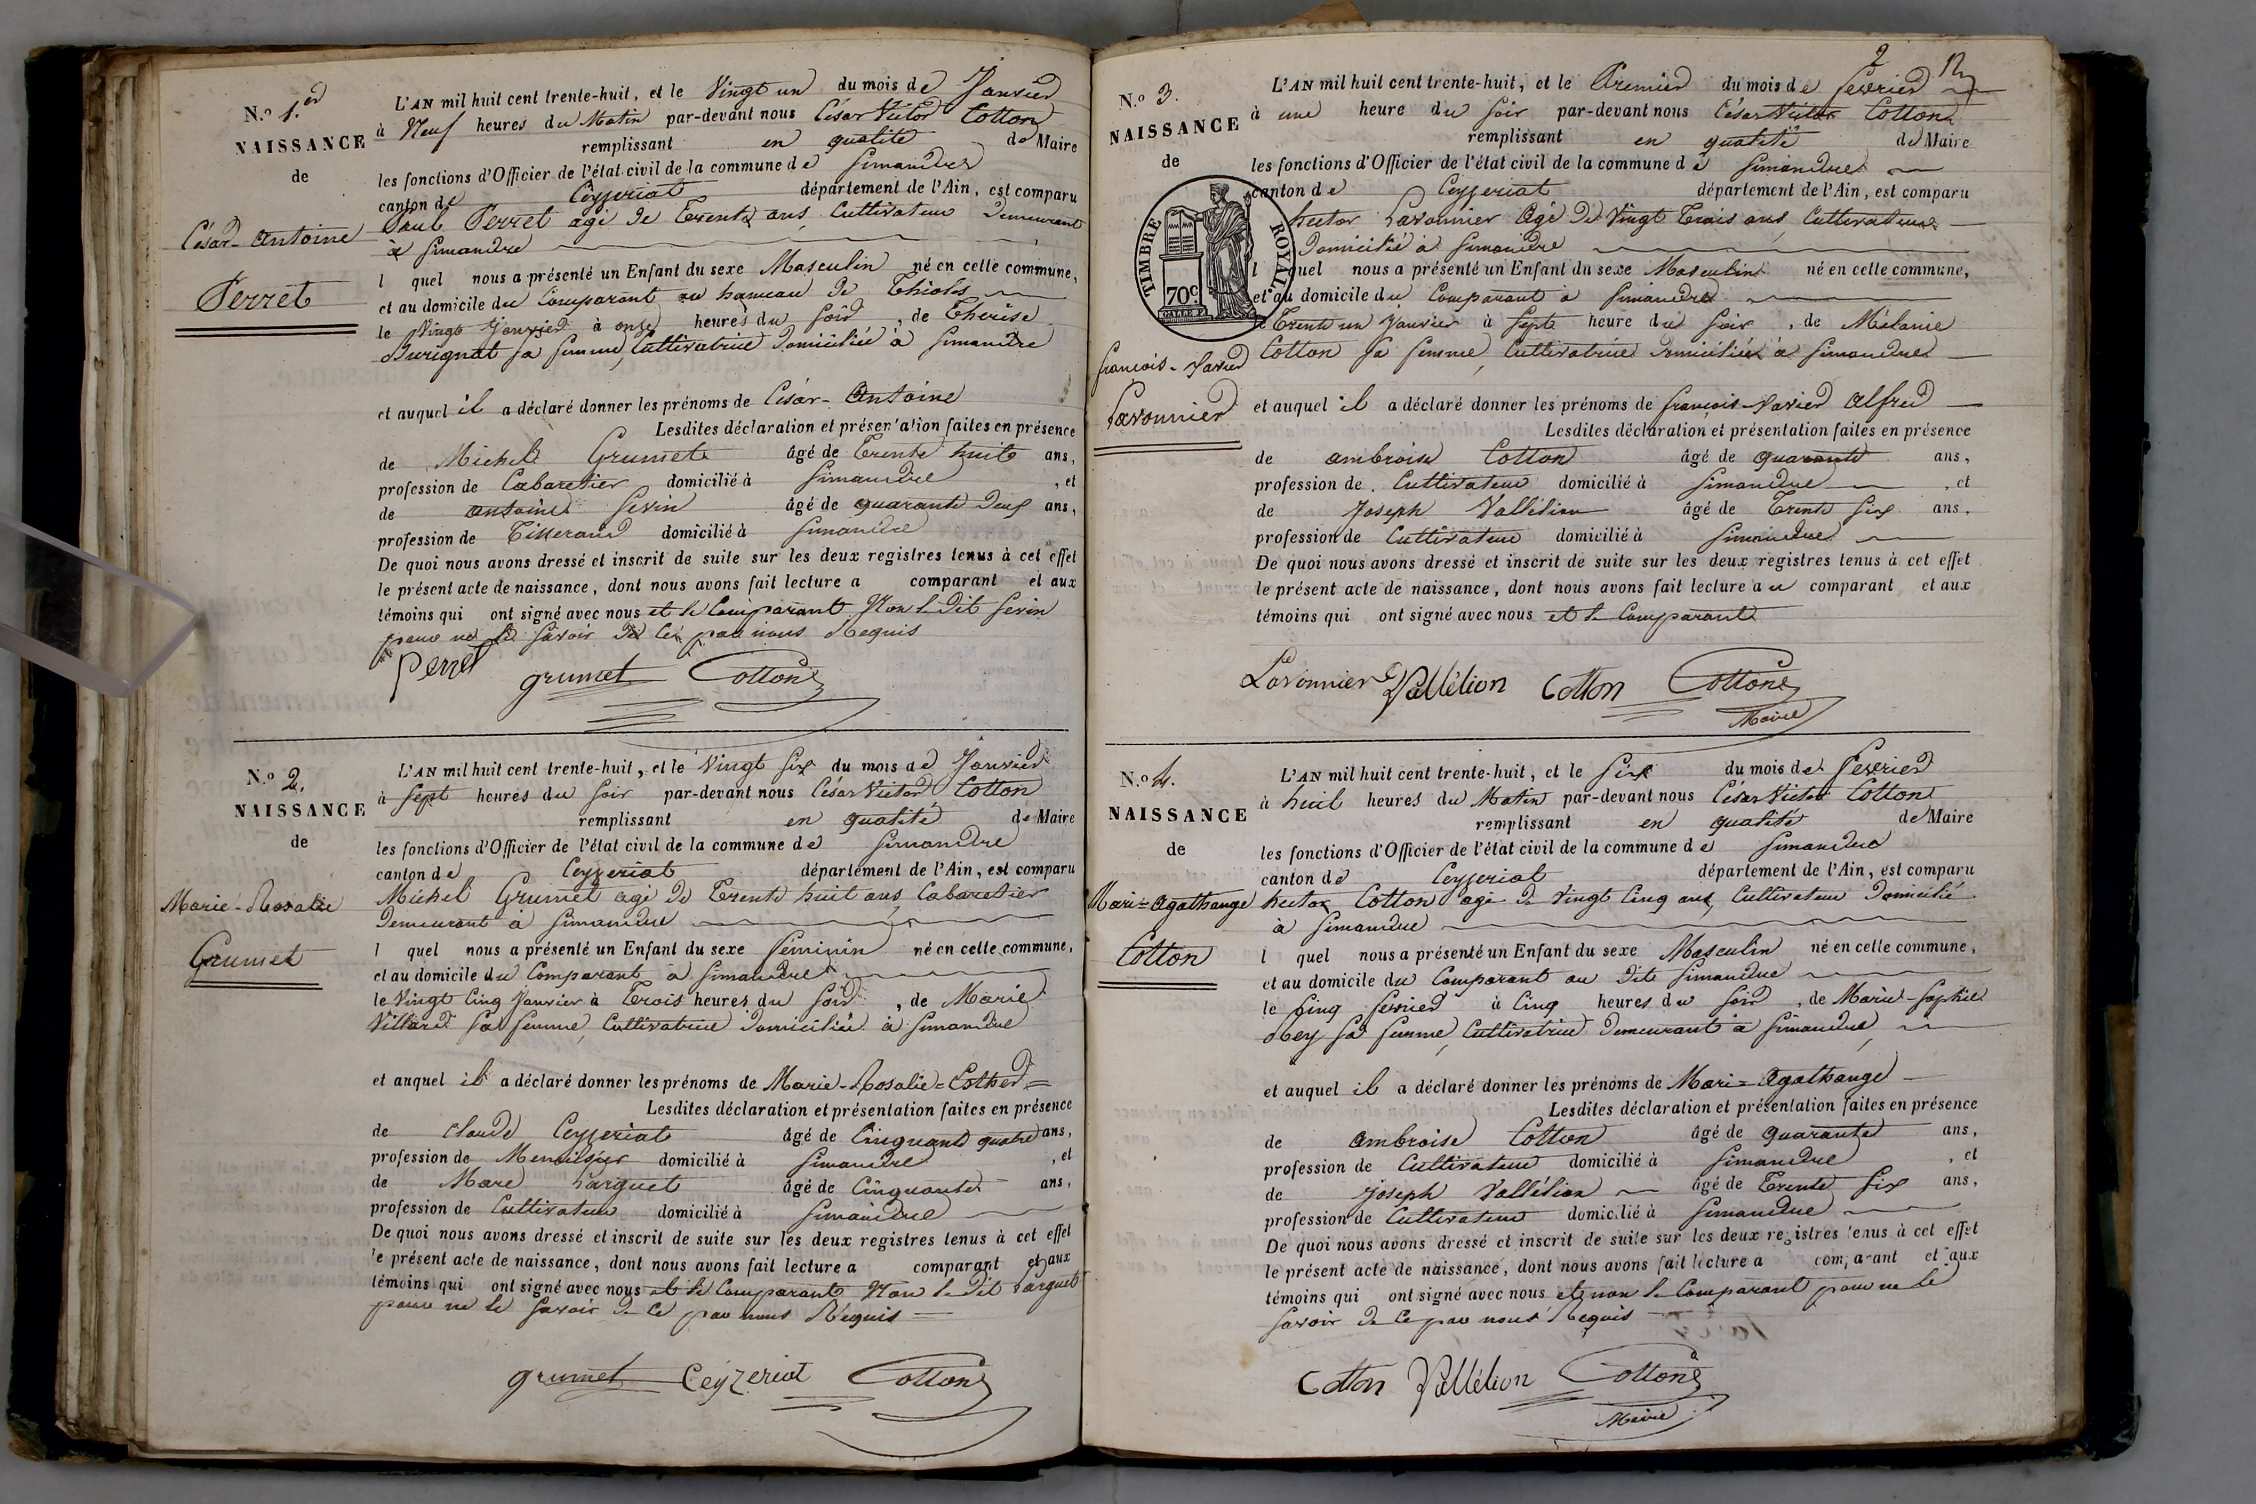 N.º 1.er
NAISSANCE
de
César-Antoine
Perret
L'AN mil huit cent trente-huit, et le Vingt un du mois de Janvier
à Neuf heures du Matin par-devant nous César Victor Cotton
remplissant en qualité de Maire
les fonctions d'Officier de l'état civil de la commune de Simandre
canton de Ceyzeriat département de l'Ain, est comparu
Paul Perret agé de Trente ans Cultivateur Demeurant
à Simandre
l quel nous a présenté un Enfant du sexe Masculin né en cette commune,
et au domicile du Comparant au hameau de Thioles
le Vingt Janvier à onze heures du Soir, de Thérèse
Burignat sa femme, Cultivatrice Domiciliée à Simandre
et auquel il a déclaré donner les prénoms de César-Antoine
Lesdites déclaration et présentation faites en présence
de Michel Grumet âgé de Trente huit ans,
profession de Cabaretier domicilié à Simandre, et
de Antoine Sevin âgé de quarante Deux ans,
profession de Tisserand domicilié à Simandre
De quoi nous avons dressé et inscrit de suite sur les deux registres tenus à cet effet
le présent acte de naissance, dont nous avons fait lecture a comparant et aux
témoins qui ont signé avec nous et le Comparant Non le dit Sevin
pour ne le Savoir De ce par nous Requis
Perret grumet Cotton
N.º 2.
NAISSANCE
de
Marie-Rosalie
Grumet
L'AN mil huit cent trente-huit, et le Vingt Six du mois de Janvier
à Sept heures du Soir par-devant nous César Victor Cotton
remplissant en qualité de Maire
les fonctions d'Officier de l'état civil de la commune de Simandre
canton de Ceyzeriat département de l'Ain, est comparu
Michel Grumet agé De Trente huit ans, Cabaretier
Demeurant à Simandre
l quel nous a présenté un Enfant du sexe Féminin né en cette commune,
et au domicile du Comparant à Simandre
le Vingt Cinq Janvier à Trois heures du Soir, de Marie
Villard Sa femme, Cultivatrice Domiciliée à Simandre
et auquel il a déclaré donner les prénoms de Marie-Rosalie=Esther=
Lesdites déclaration et présentation faites en présence
de Claude Ceyzeriat âgé de Cinquante quatre ans,
profession de Menuisier domicilié à Simandre, et
de Marc Parguet âgé de Cinquante ans,
profession de Cultivateur domicilié à Simandre
De quoi nous avons dressé et inscrit de suite sur les deux registres tenus à cet effet
le présent acte de naissance, dont nous avons fait lecture a comparant et aux
témoins qui ont signé avec nous et le Comparant Non le dit Parguet
pour ne le Savoir De ce par nous Requis
grumet Ceyzeriat Cotton
2
N.º 3.
NAISSANCE
de
TIMBRE ROYAL
70c
François-Xavier
Lavonnier
L'AN mil huit cent trente-huit, et le Premier du mois de Fevrier
à une heure du Soir par-devant nous César Victor Cotton
remplissant en qualité de Maire
les fonctions d'Officier de l'état civil de la commune de Simandre
canton de Ceyzeriat département de l'Ain, est comparu
hector Lavonnier Agé De Vingt Trois ans, Cultivateur
Domicilié à Simandre
l quel nous a présenté un Enfant du sexe Masculin né en cette commune,
et au domicile du Comparant à Simandre
Trente un Janvier à Sept heure du Soir, de Mélanie
Cotton Sa femme, Cultivatrice Domiciliée à Simandre
et auquel il a déclaré donner les prénoms de François-Xavier Alfred
Lesdites déclaration et présentation faites en présence
de Ambroise Cotton âgé de quarante ans,
profession de Cultivateur domicilié à Simandre, et
de Joseph Vallélion âgé de Trente Six ans,
profession de Cultivateur domicilié à Simandre
De quoi nous avons dressé et inscrit de suite sur les deux registres tenus à cet effet
le présent acte de naissance, dont nous avons fait lecture au comparant et aux
témoins qui ont signé avec nous et le Comparant
Lavonnier Vallélion Cotton Cotton
Maire
N.º 4.
NAISSANCE
de
Mari=Agathange
Cotton
L'AN mil huit cent trente-huit, et le Six du mois de Fevrier
à huit heures du Matin par-devant nous César Victor Cotton
remplissant en qualité de Maire
les fonctions d'Officier de l'état civil de la commune de Simandre
canton de Ceyzeriat département de l'Ain, est comparu
hector Cotton agé De Vingt Cinq ans, Cultivateur Domicilié
à Simandre
l quel nous a présenté un Enfant du sexe Masculin né en cette commune,
et au domicile du Comparant au Dit Simandre
le Cinq Fevrier à Cinq heures du Soir, de Marie-Sophie
Rey Sa femme, Cultivatrice Demeurant à Simandre,
et auquel il a déclaré donner les prénoms de Mari=Agathange
Lesdites déclaration et présentation faites en présence
de Ambroise Cotton âgé de quarante ans,
profession de Cultivateur domicilié à Simandre, et
de Joseph Vallélion âgé de Trente Six ans,
profession de Cultivateur domicilié à Simandre
De quoi nous avons dressé et inscrit de suite sur les deux registres tenus à cet effet
le présent acte de naissance, dont nous avons fait lecture a comparant et aux
témoins qui ont signé avec nous et non le Comparant pour ne le
Savoir De ce par nous Requis
Cotton Vallélion Cotton
Maire